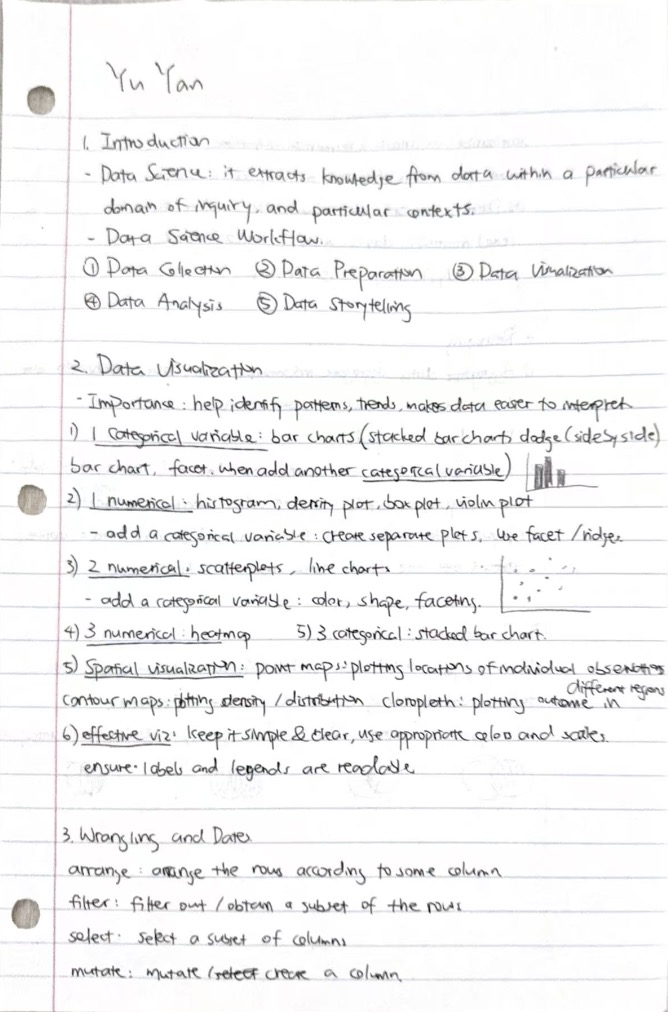 Yu Yan
1. Introduction
- Data Science: it extracts knowledge from data within a particular
domain of inquiry, and particular contexts.
- Data Science Workflow.
① Data Collection ② Data Preparation ③ Data Visualization
④ Data Analysis ⑤ Data Storytelling
2. Data Visualization
- Importance: help identify patterns, trends, makes data easier to interpret
1) 1 categorical variable: bar charts (stacked bar charts dodge (side by side)
bar chart, facet, when add another categorical variable)
2) 1 numerical: histogram, density plot, box plot, violin plot
- add a categorical variable: create separate plots, use facet / ridges
3) 2 numerical: scatterplots, line charts
- add a categorical variable: color, shape, faceting.
4) 3 numerical: heatmap 5) 3 categorical: stacked bar chart.
5) Spatial visualization: point maps: plotting locations of individual observations
contour maps: plotting density / distribution cloropleth: plotting outcome in different regions
6) effective viz: keep it simple & clear, use appropriate color and scales.
ensure labels and legends are readable
3. Wrangling and Dates
arrange: arrange the rows according to some column
filter: filter out / obtain a subset of the rows
select: select a subset of columns
mutate: mutate / select create a column